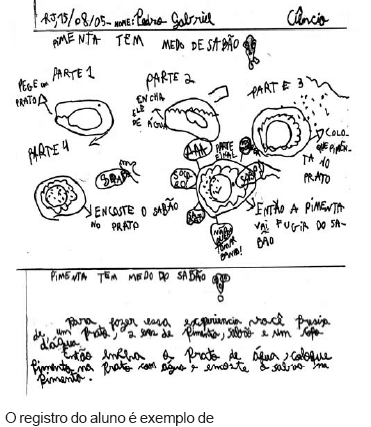 RJ 15/08/05 - NOME: Pedro Gabriel Ciência
PIMENTA TEM MEDO DE SABÃO
PARTE 1
PEGE UM
PRATO
PARTE 2
ENCHA
ELE
DE ÁGUA
PARTE 3
COLO
QUE PIMEN
TA NO
PRATO
PARTE 4
SABÃO
ENCOSTE O SABÃO
NO PRATO
PARTE
FINAL
AAA
SOCO
RRO
NÃO
QUERO
TOMAR
BANHO!
ENTÃO A PIMENTA
VAI FUGIR DO SA-
BÃO
PIMENTA TEM MEDO DO SABÃO
Para fazer essa experiencia você precisa
de um prato, 2 de pimenta, sabão e um copo
d'água
Então encha o prato de água, coloque
pimenta no prato com água e encoste o sabão na
pimenta.
O registro do aluno é exemplo de